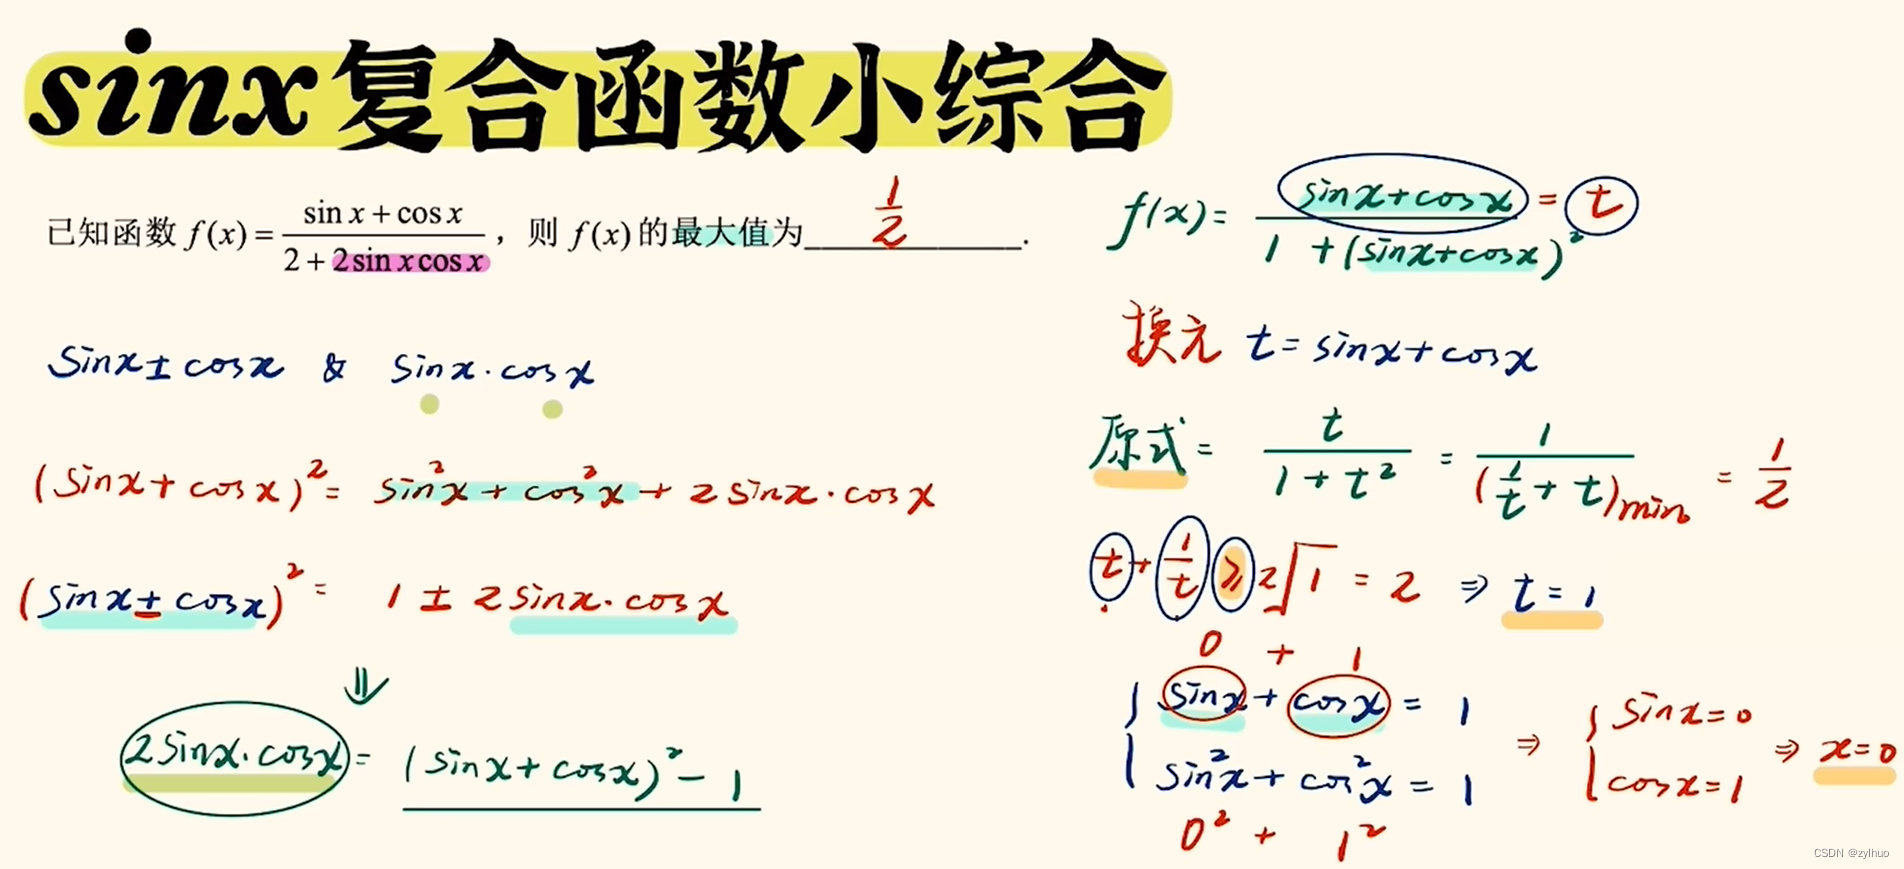 sinx复合函数小综合
已知函数 f(x) = (sin x + cos x)/(2 + 2sin x cos x) ，则 f(x) 的最大值为 1/2 .
sinx ± cosx & sinx·cosx
(sinx + cosx)² = sin²x + cos²x + 2sinx·cosx
(sinx ± cosx)² = 1 ± 2sinx·cosx
⇓
2sinx·cosx = (sinx + cosx)² − 1
f(x) = (sinx+cosx)/(1 + (sinx+cosx)²) = t
换元 t = sinx + cosx
原式 = t/(1 + t²) = 1/(1/t + t)min = 1/2
t + 1/t ≥ 2√1 = 2 ⇒ t = 1
0 + 1
{ sinx + cosx = 1
sin²x + cos²x = 1 ⇒ { sinx = 0
cosx = 1 ⇒ x = 0
0² + 1²
CSDN @zylhuo